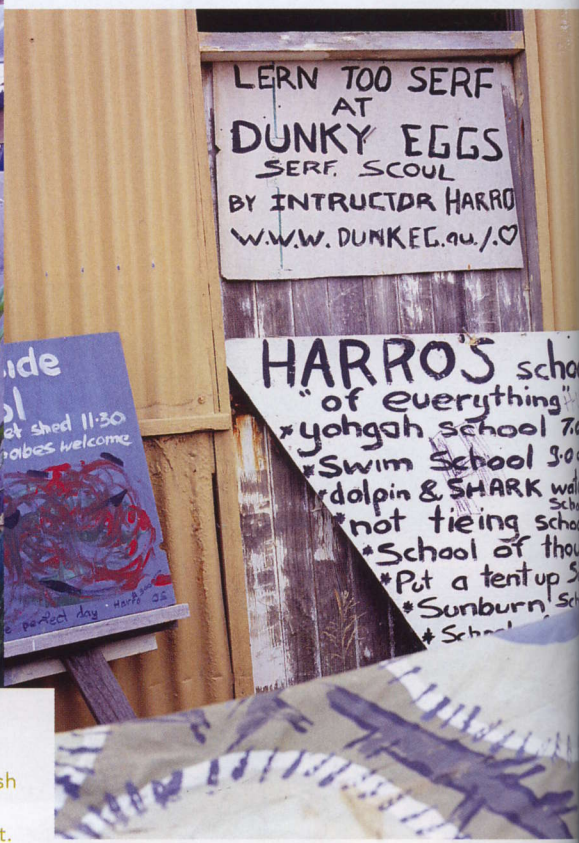 LERN TOO SERF
AT
DUNKY EGGS
SERF. SCOUL
BY INTRUCTOR HARRO
W.W.W. DUNKEG.au./.♡
HARRO'S scho
"of everything"
*yohgah school 7.
*Swim School 9.0
*dolpin & SHARK wat
Scho
*not tieing scho
*School of thou
*Put a tent up S
*Sunburn Sc
* Sch
ide
ol
et shed 11.30
babes welcome
perfect day Harro
sh
t.